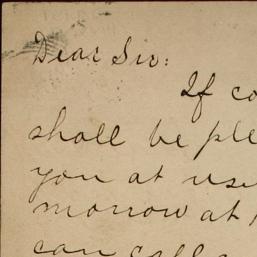 Dear Sir:
If co
shall be ple
you at use
morrow at
can call